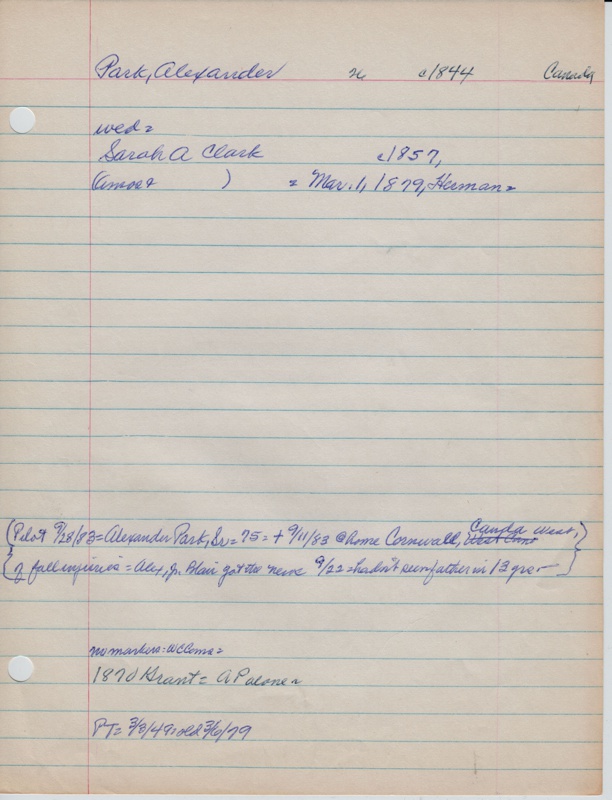 Park, Alexander c1844 Canada
wed=
Sarah A Clark c1857,
(Amos & ) = Mar. 1, 1879, Herman=
(Pilot 9/28/83= Alexander Park, Sr= 75= + 9/11/83 @ home Cornwall, Canda West,
of fall injuries= Alex, Jr. Blair got the news 9/22= hadn't seen father in 13 yrs-)
no markers= WCCem=
1870 Grant= A P alone=
PT= 3/8/49; old 3/6/79